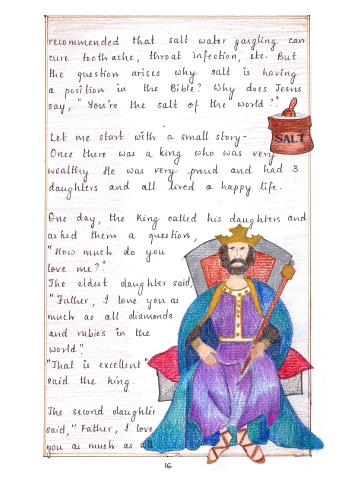 recommended that salt water gargling can
cure toothache, throat infection, etc. But
the question arises why salt is having
a position in the Bible? Why does Jesus
say, "You're the salt of the world?"
SALT
Let me start with a small story-
Once there was a king who was very
wealthy. He was very proud and had 3
daughters and all lived a happy life.
One day, the King called his daughters and
asked them a question,
"How much do you
love me?"
The eldest daughter said,
"Father, I love you as
much as all diamonds
and rubies in the
world".
"That is excellent"
said the king.
The second daughter
said, "Father, I love
you as much as all
16